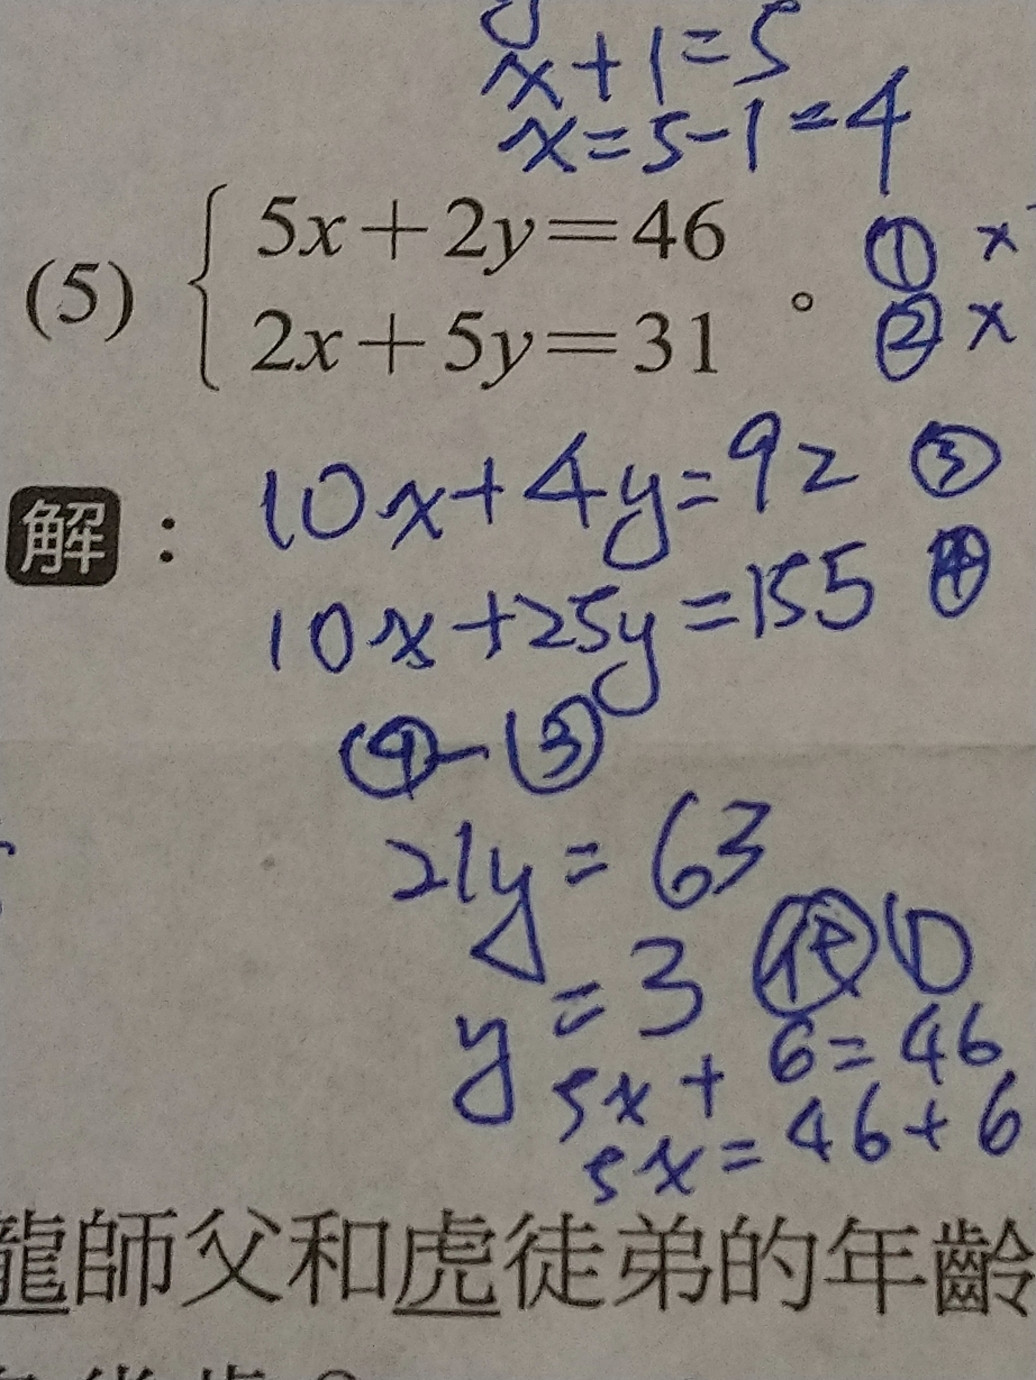 x+1=5
x=5-1=4
(5) { 5x+2y=46 ① x
2x+5y=31 。 ② x
解： 10x+4y=92 ③
10x+25y=155 ④
④-③
21y=63
y=3 代①
5x+6=46
5x=46+6
龍師父和虎徒弟的年齡